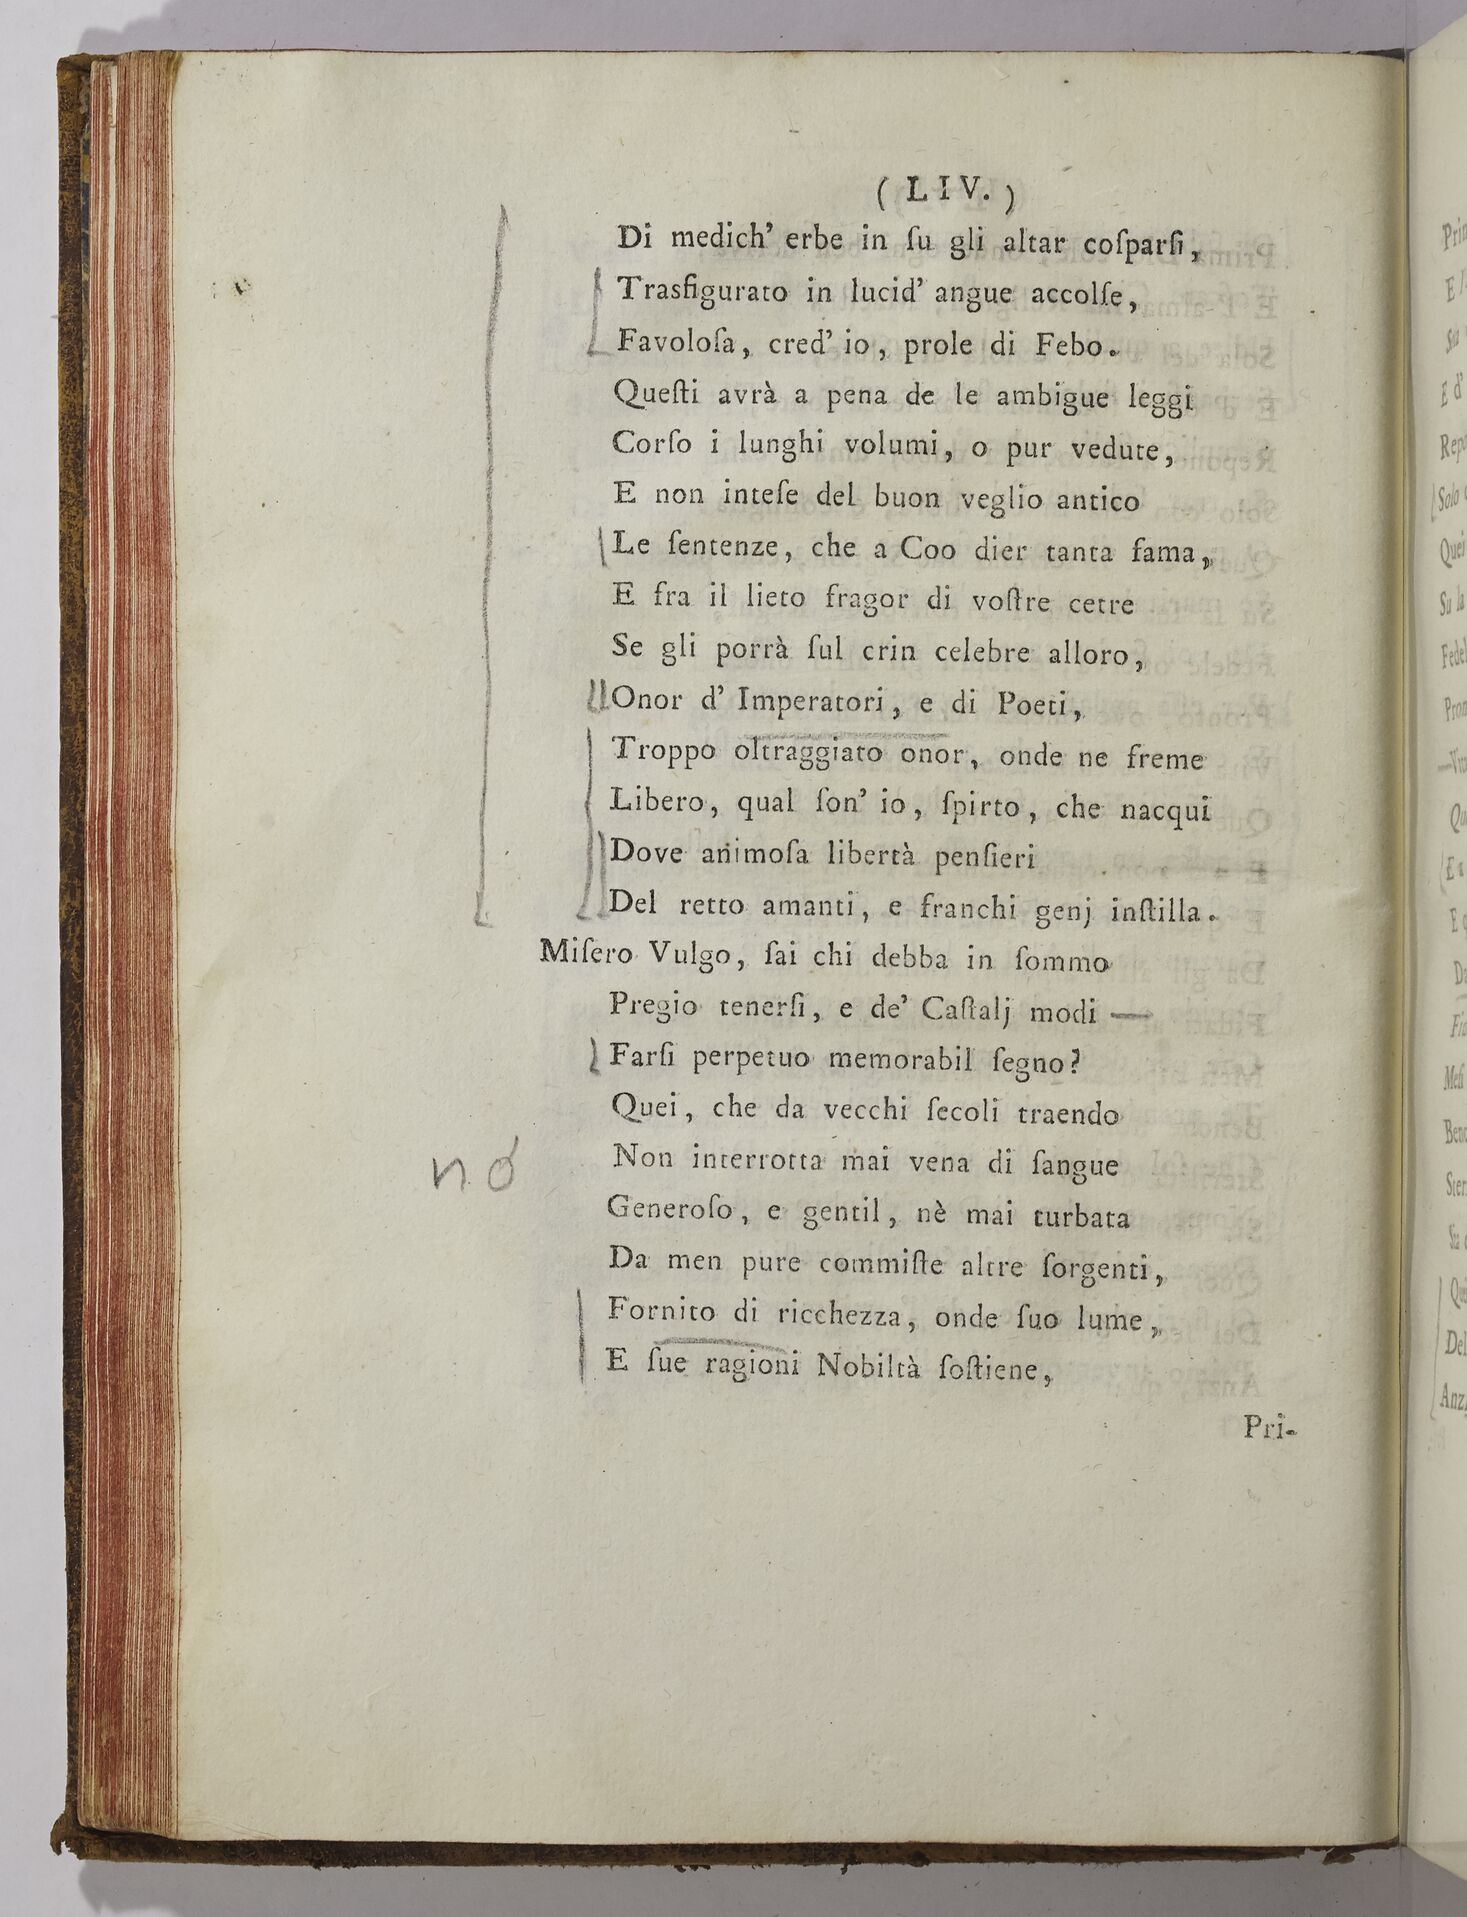 ( LIV. )
Di medich' erbe in ſu gli altar coſparſi,
Trasfigurato in lucid' angue accolſe,
Favoloſa, cred' io, prole di Febo.
Queſti avrà a pena de le ambigue leggi
Corſo i lunghi volumi, o pur vedute,
E non inteſe del buon veglio antico
Le ſentenze, che a Coo dier tanta fama,
E fra il lieto fragor di voſtre cetre
Se gli porrà ſul crin celebre alloro,
Onor d' Imperatori, e di Poeti,
Troppo oltraggiato onor, onde ne freme
Libero, qual ſon' io, ſpirto, che nacqui
Dove animoſa libertà penſieri
Del retto amanti, e franchi genj inſtilla.
Miſero Vulgo, ſai chi debba in ſommo
Pregio tenerſi, e de' Caſtalj modi
Farſi perpetuo memorabil ſegno?
Quei, che da vecchi ſecoli traendo
no Non interrotta mai vena di ſangue
Generoſo, e gentil, nè mai turbata
Da men pure commiſte altre ſorgenti,
Fornito di ricchezza, onde ſuo lume,
E ſue ragioni Nobiltà ſoſtiene,
Pri-